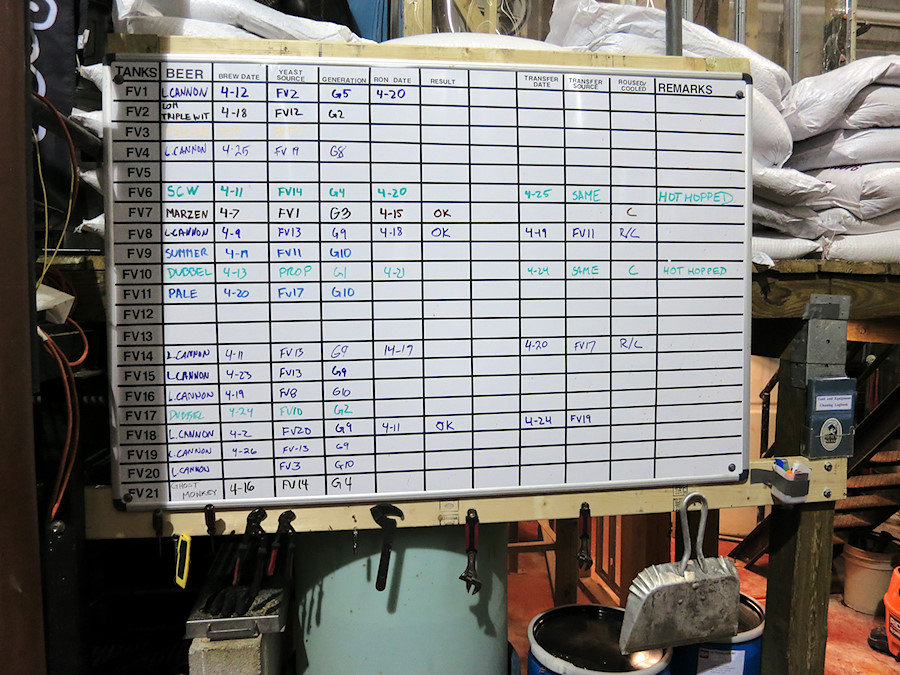 TANKS BEER BREW DATE YEAST SOURCE GENERATION RON DATE RESULT TRANSFER DATE TRANSFER SOURCE ROUSED/COOLED REMARKS
FV1 L.CANNON 4-12 FV2 G5 4-20
FV2 LOH TRIPLE WIT 4-18 FV12 G2
FV3
FV4 L.CANNON 4-25 FV19 G8
FV5
FV6 SCW 4-11 FV14 G4 4-20 4-25 SAME HOT HOPPED
FV7 MARZEN 4-7 FV1 G3 4-15 OK C
FV8 L.CANNON 4-9 FV13 G9 4-18 OK 4-19 FV11 R/C
FV9 SUMMER FV11 G10
FV10 DUBBEL 4-13 PROP G1 4-21 4-24 SAME C HOT HOPPED
FV11 PALE 4-20 FV17 G10
FV12
FV13
FV14 L.CANNON 4-11 FV13 G9 14-17 4-20 FV17 R/C
FV15 L.CANNON 4-23 FV13 G9
FV16 L.CANNON 4-19 FV8 G10
FV17 DUBBEL 4-24 FV10 G2
FV18 L.CANNON 4-2 FV20 G9 4-11 OK 4-24 FV19
FV19 L.CANNON 4-26 FV-13 G9
FV20 L.CANNON FV3 G10
FV21 GHOST MONKEY 4-16 FV14 G4